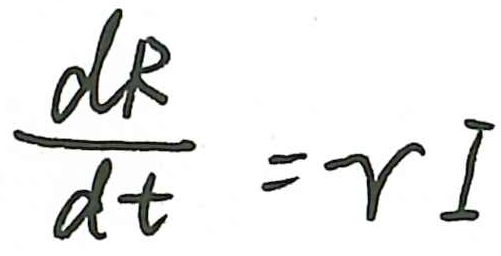 \frac{dR}{dt} = \gamma I